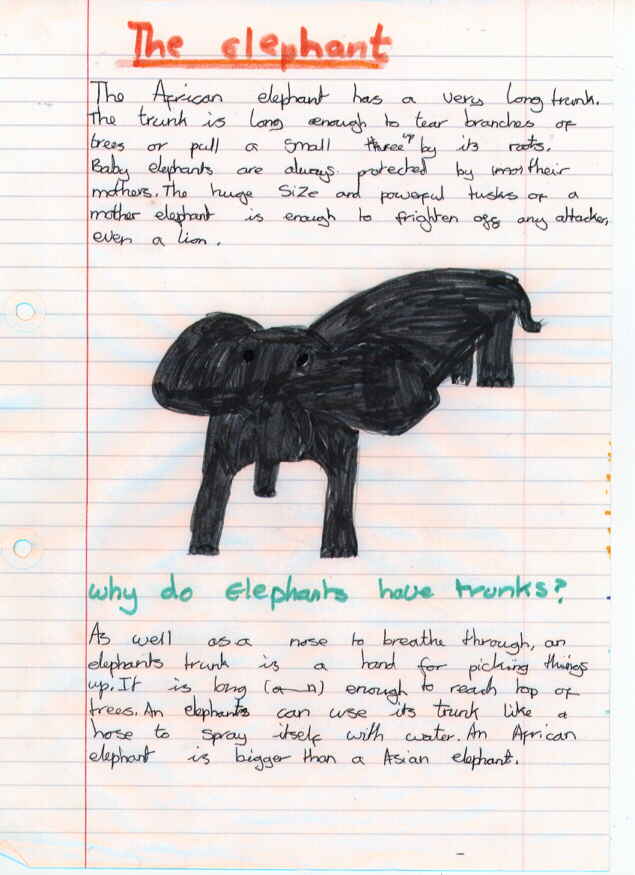 The elephant
The African elephant has a very long trunk.
The trunk is long enough to tear branches of
trees or pull a small three up by its roots.
Baby elephants are always protected by their
mothers. The huge size and powerful tusks of a
mother elephant is enough to frighten off any attacker,
even a lion.
why do Elephants have trunks?
As well as a nose to breathe through, an
elephants trunk is a hand for picking things
up. It is long (a n) enough to reach top of
trees. An elephants can use its trunk like a
hose to spray itself with water. An African
elephant is bigger than a Asian elephant.